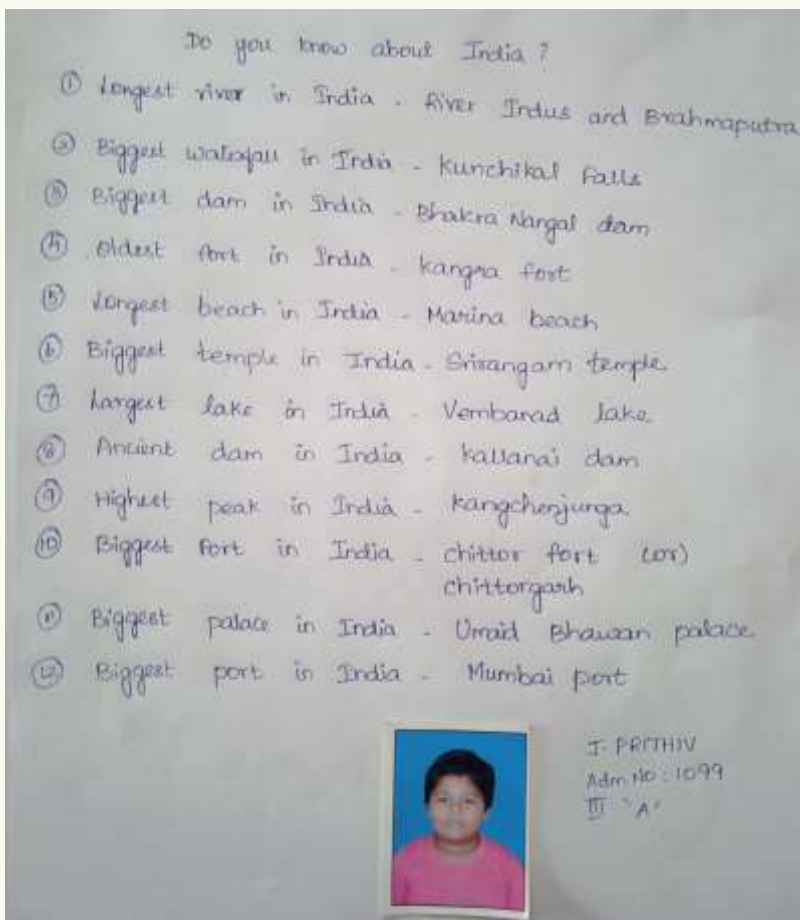 Do you know about India ?
① Longest river in India - River Indus and Brahmaputra
② Biggest waterfall in India - Kunchikal Falls
③ Biggest dam in India - Bhakra Nangal dam
④ Oldest fort in India - Kangra fort
⑤ Longest beach in India - Marina beach
⑥ Biggest temple in India - Srirangam temple
⑦ Largest lake in India - Vembanad lake
⑧ Ancient dam in India - Kallanai dam
⑨ Highest peak in India - Kangchenjunga
⑩ Biggest Fort in India - chittor fort (or)
chittorgarh
⑪ Biggest palace in India - Umaid Bhawan palace
⑫ Biggest port in India - Mumbai port
J. PRITHIV
Adm No : 1099
III "A"